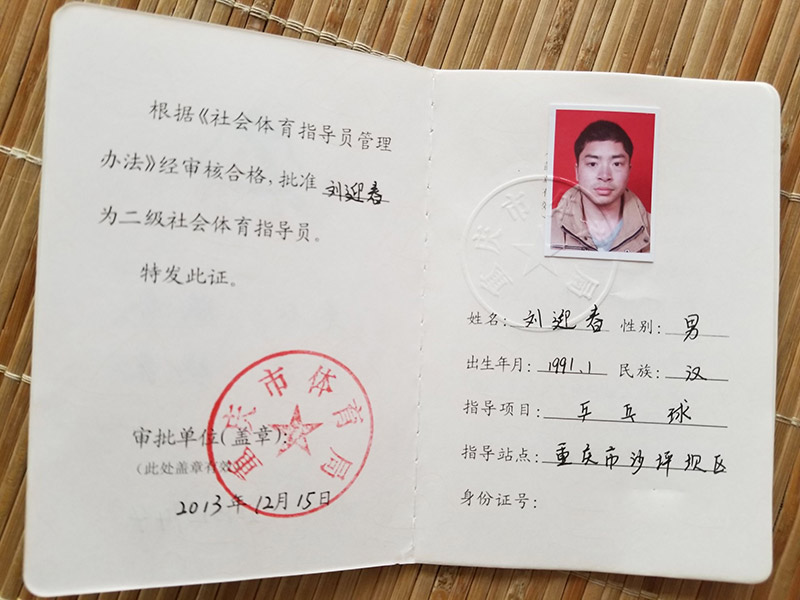 根据《社会体育指导员管理
办法》经审核合格,批准 刘迎春
为二级社会体育指导员。
特发此证。
重庆市体育局
审批单位(盖章):
(此处盖章有效)
2013年12月15日
重庆市体育局
姓名: 刘迎春 性别: 男
出生年月: 1991.1 民族: 汉
指导项目: 乒乓球
指导站点: 重庆市沙坪坝区
身份证号: